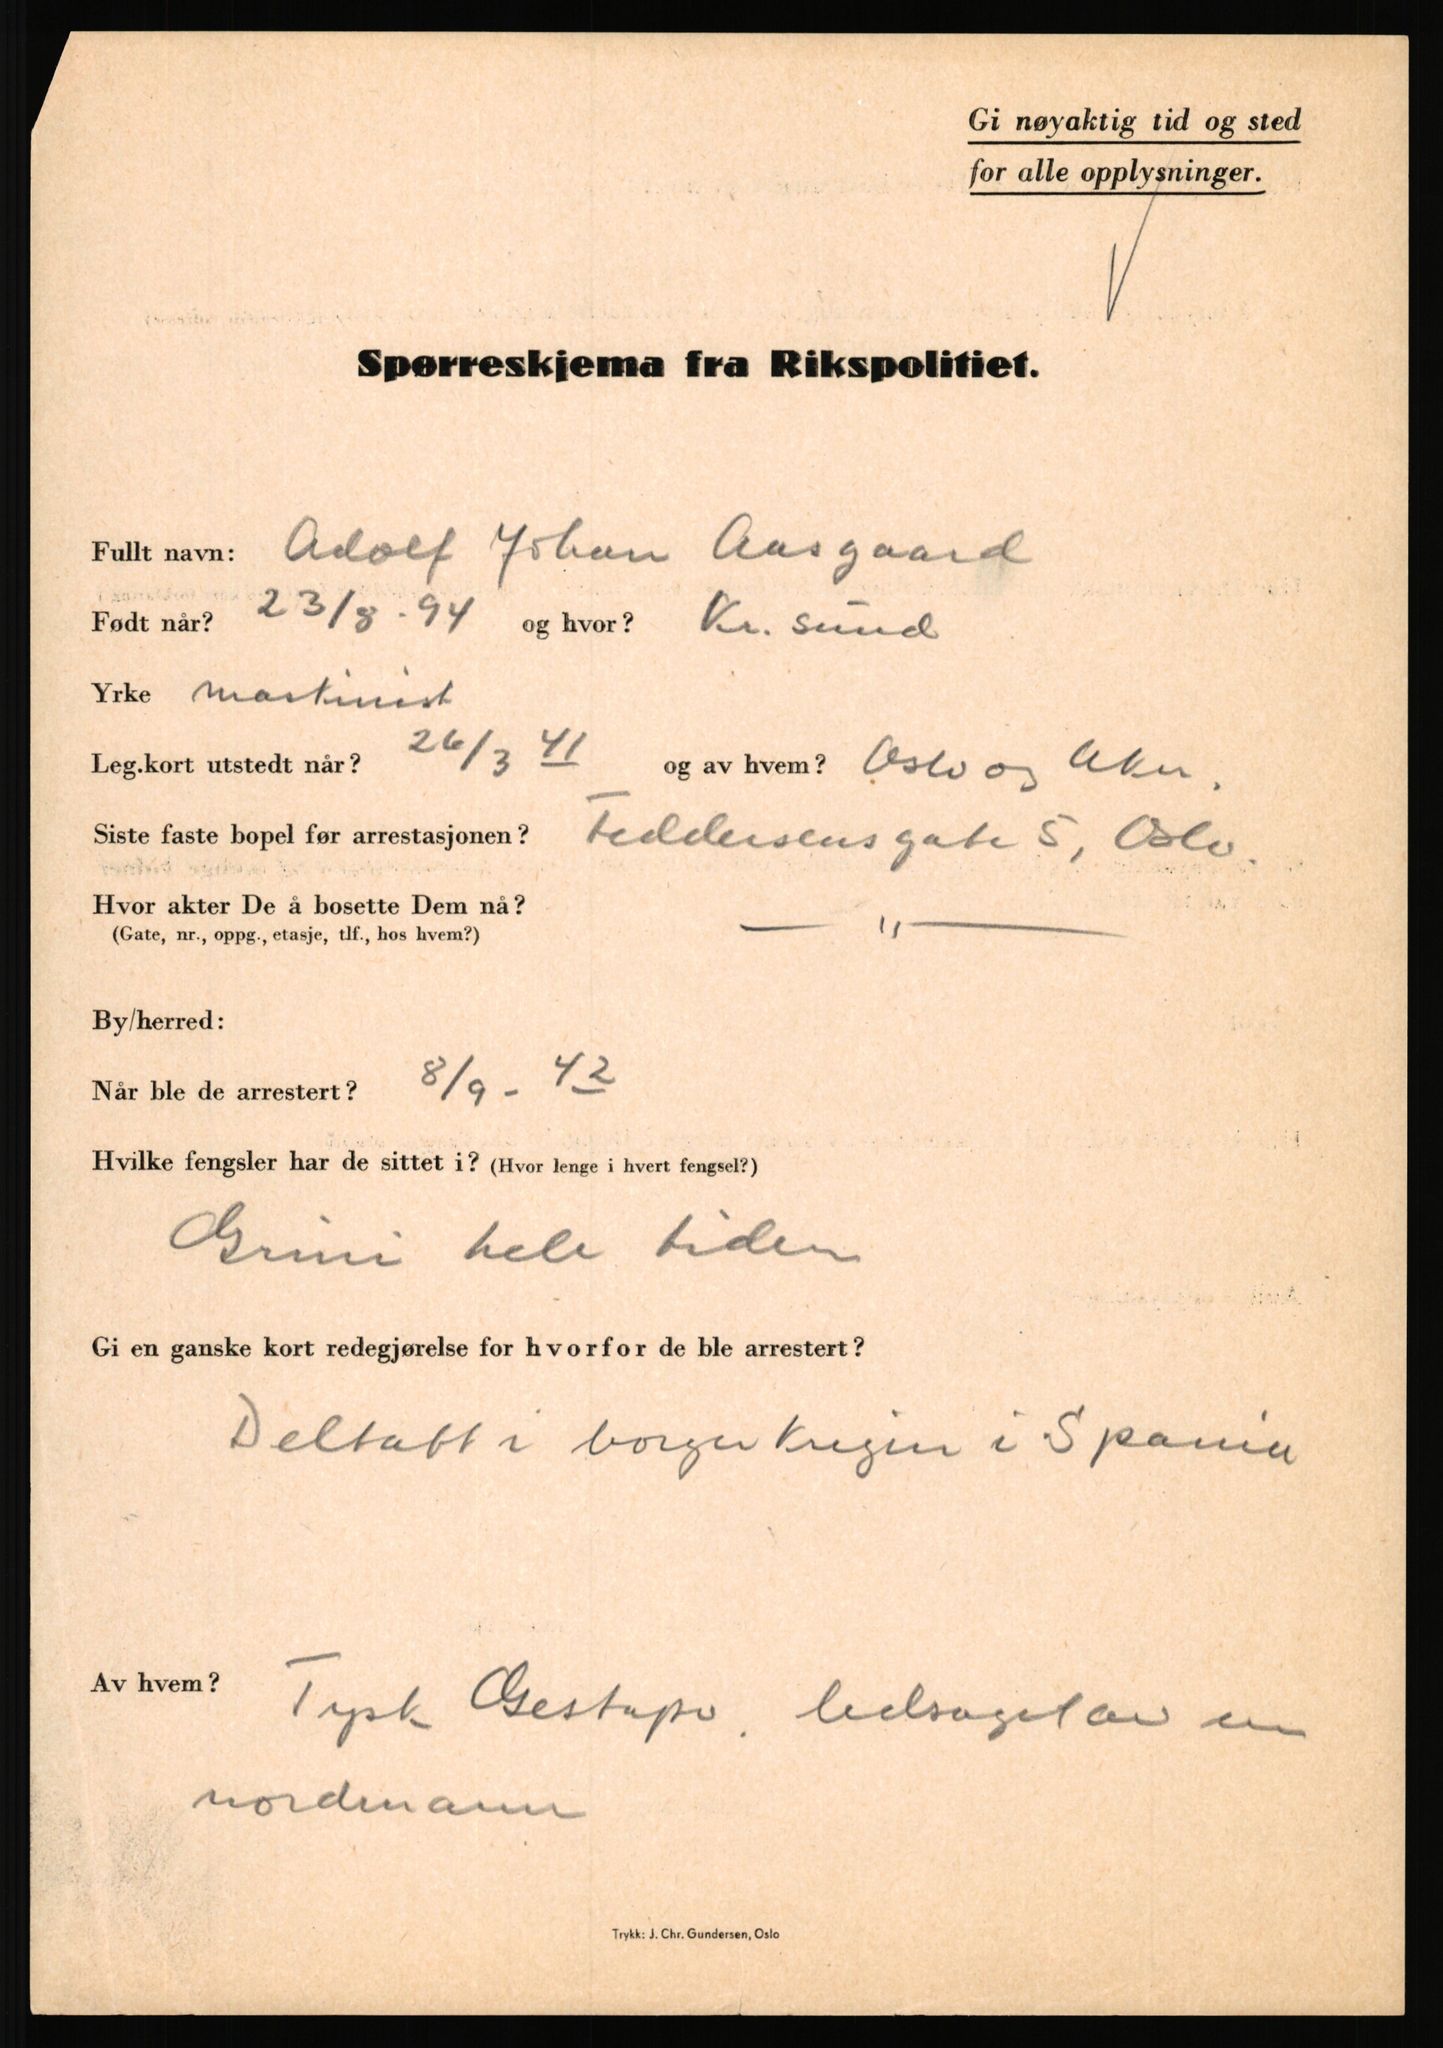 Gi nøyaktig tid og sted
for alle opplysninger.
Spørreskjema fra Rikspolitiet.
Fullt navn: Adolf Johan Aasgaard
Født når? 23/8-94 og hvor? Kr. sund
Yrke maskinist
Leg.kort utstedt når? 26/3 41 og av hvem? Oslo og Aker.
Siste faste bopel før arrestasjonen? Feddersensgate 5, Oslo.
Hvor akter De å bosette Dem nå? — " —
(Gate, nr., oppg., etasje, tlf., hos hvem?)
By/herred:
Når ble de arrestert? 8/9 - 42
Hvilke fengsler har de sittet i? (Hvor lenge i hvert fengsel?)
Grini hele tiden
Gi en ganske kort redegjørelse for hvorfor de ble arrestert?
Deltatt i borgerkrigen i Spania
Av hvem? Tysk Gestapo, ledsaget av en
nordmann
Trykk: J. Chr. Gundersen, Oslo